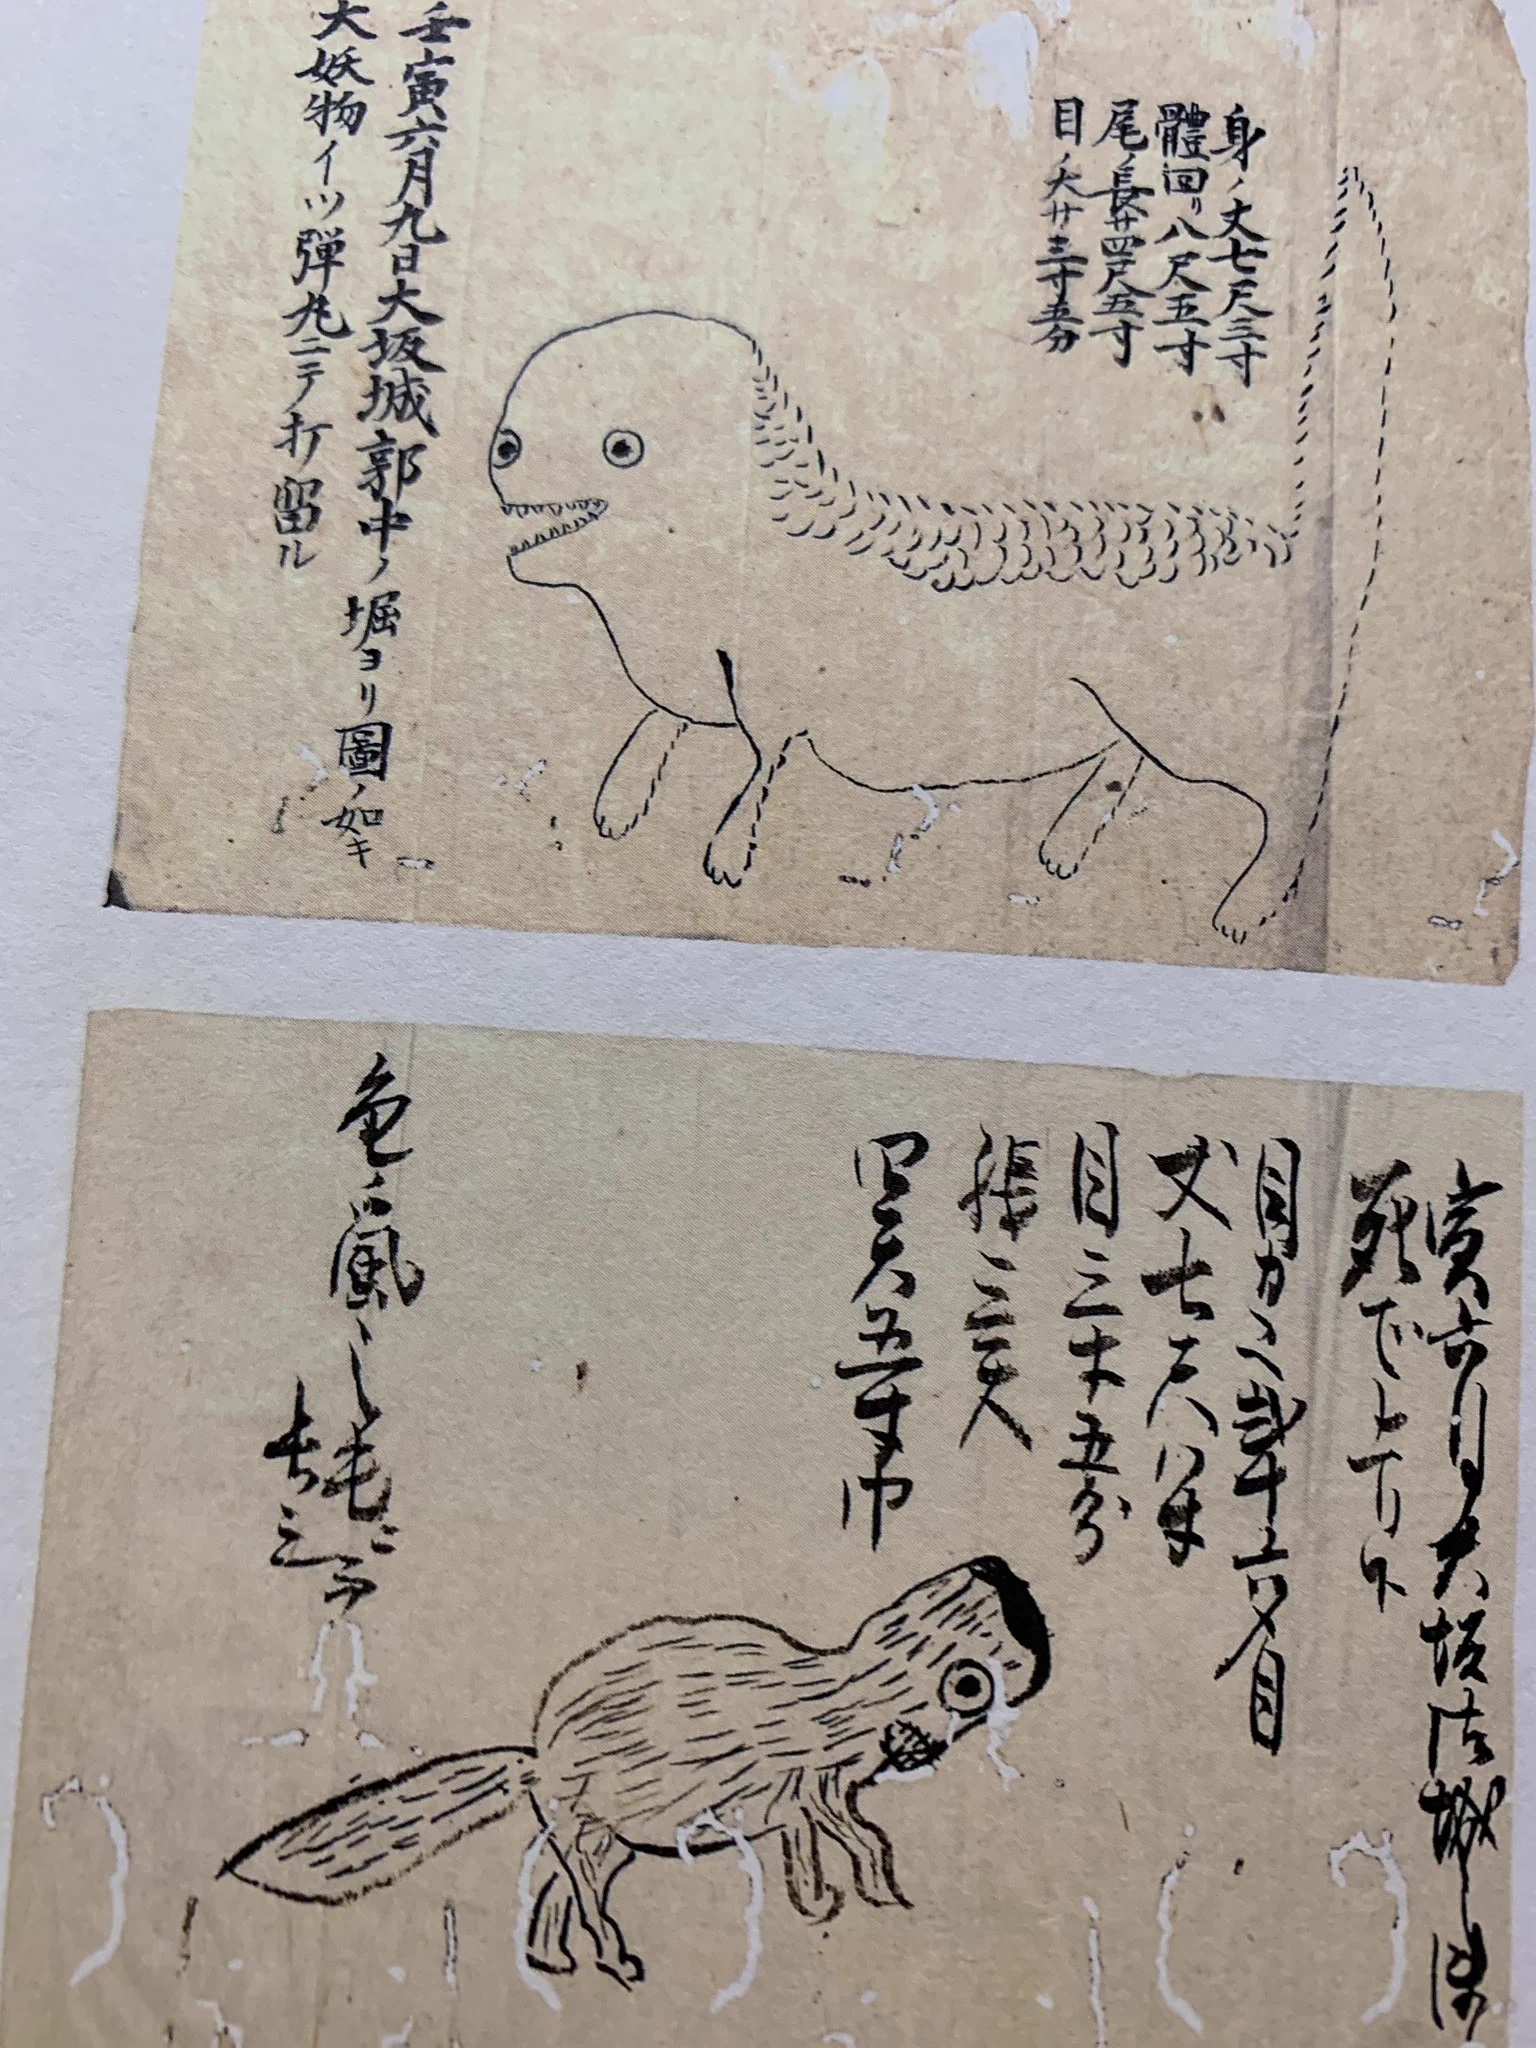 身ノ丈七尺三寸
體回リ八尺五寸
尾ノ長廿四尺五寸
目ノ大サ三寸五分
壬寅六月九日大坂城郭中ノ堀ヨリ圖ノ如キ
大妖物イツ弾丸ニテ打留ル
寅六月大坂御城
死
目方弐十六〆目
丈七尺八寸
目三寸五分
張三尺
四尺五寸巾
色ハ鼠之毛ニ而
長三